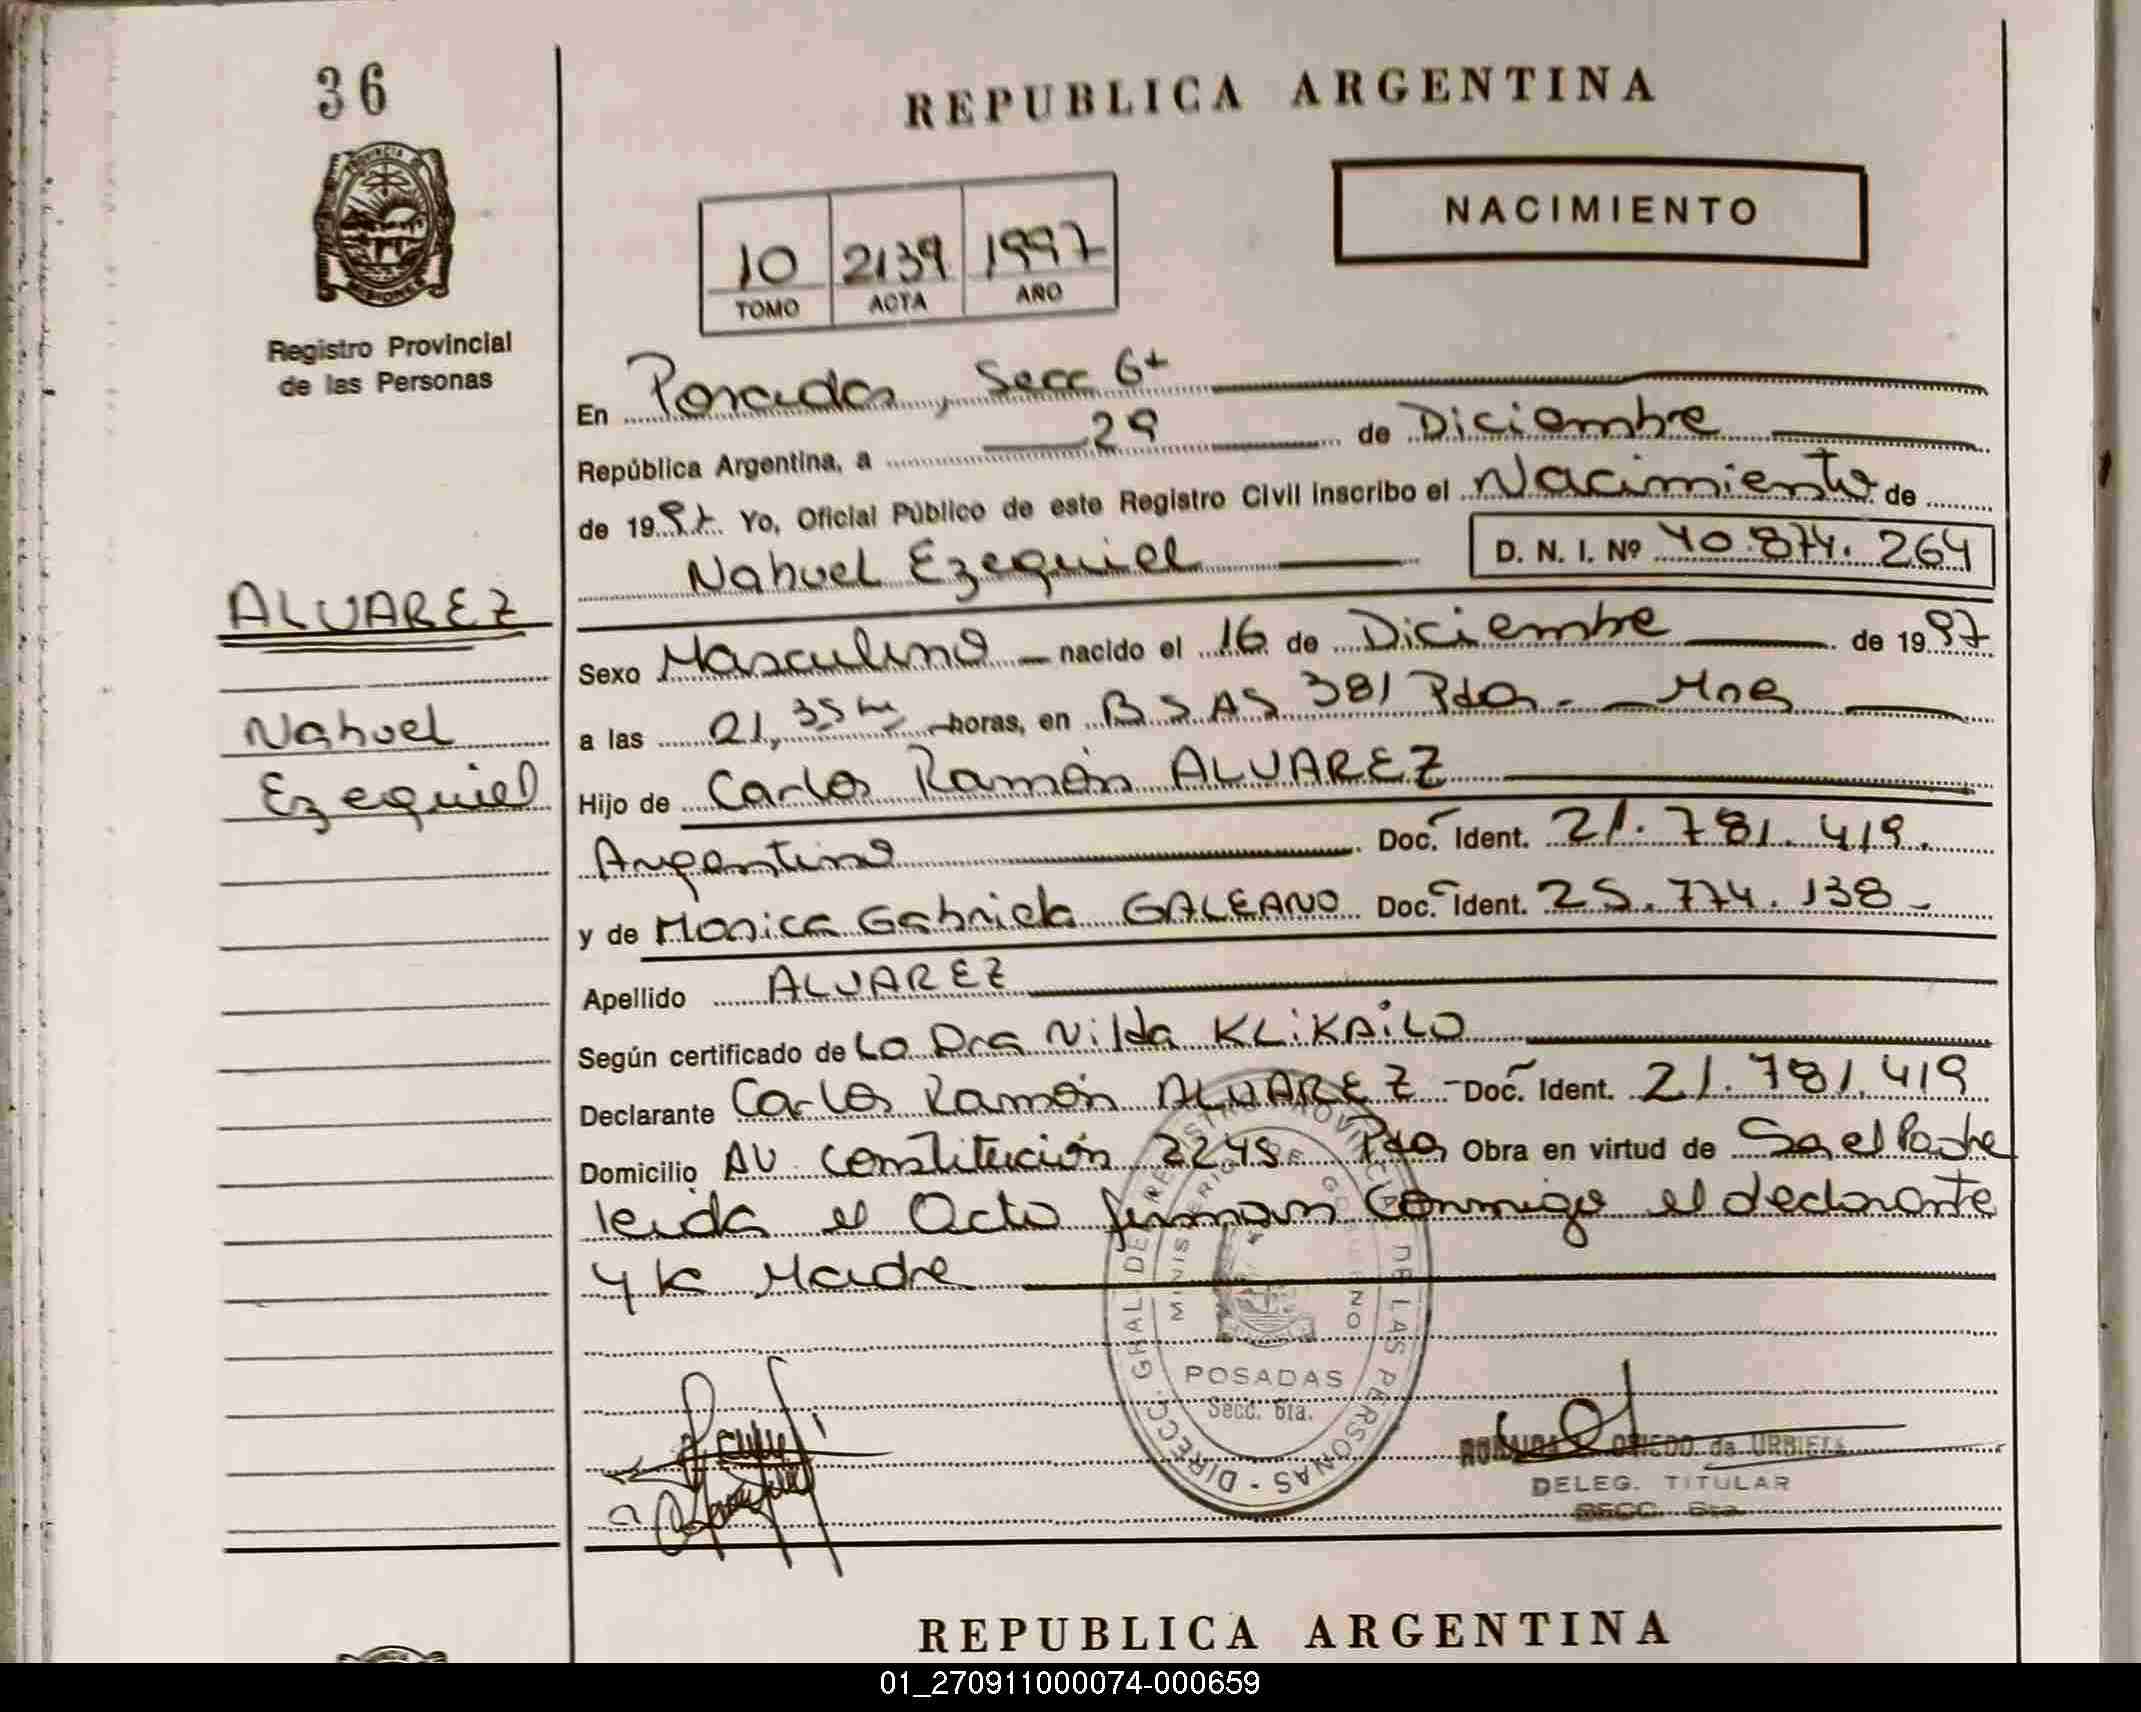 36
REPUBLICA ARGENTINA
NACIMIENTO
10 2139 1997
TOMO ACTA AÑO
Registro Provincial
de las Personas
En Posadas, Secc 6ta
República Argentina, a 29 de Diciembre
de 1997. Yo, Oficial Público de este Registro Civil inscribo el Nacimiento de
Nahuel Ezequiel D. N. I. Nº 40.874.264
ALVAREZ
Nahuel
Ezequiel
Sexo Masculino nacido el 16 de Diciembre de 1997
a las 21,35 hs horas, en BS AS 381 Pdas - Mnes
Hijo de Carlos Ramón ALVAREZ
Argentino Doc. Ident. 21.781.419.
y de Monica Gabriela GALEANO Doc. Ident. 25.774.138-
Apellido ALVAREZ
Según certificado de La Dra Nilda KLiKAiLO
Declarante Carlos Ramón ALVAREZ - Doc. Ident. 21.781.419
Domicilio AV. Constitución 2245 Pdas Obra en virtud de Ser el Padre
leida el Acta firman Conmigo el declarante
y la Madre
DIRECC. GRAL. DE REGISTRO PROVINCIAL DE LAS PERSONAS
MINISTERIO DE GOBIERNO
POSADAS
Secc. 6ta.
OVIEDO de URBIETA
DELEG. TITULAR
SECC. 6ta
REPUBLICA ARGENTINA
01_270911000074-000659